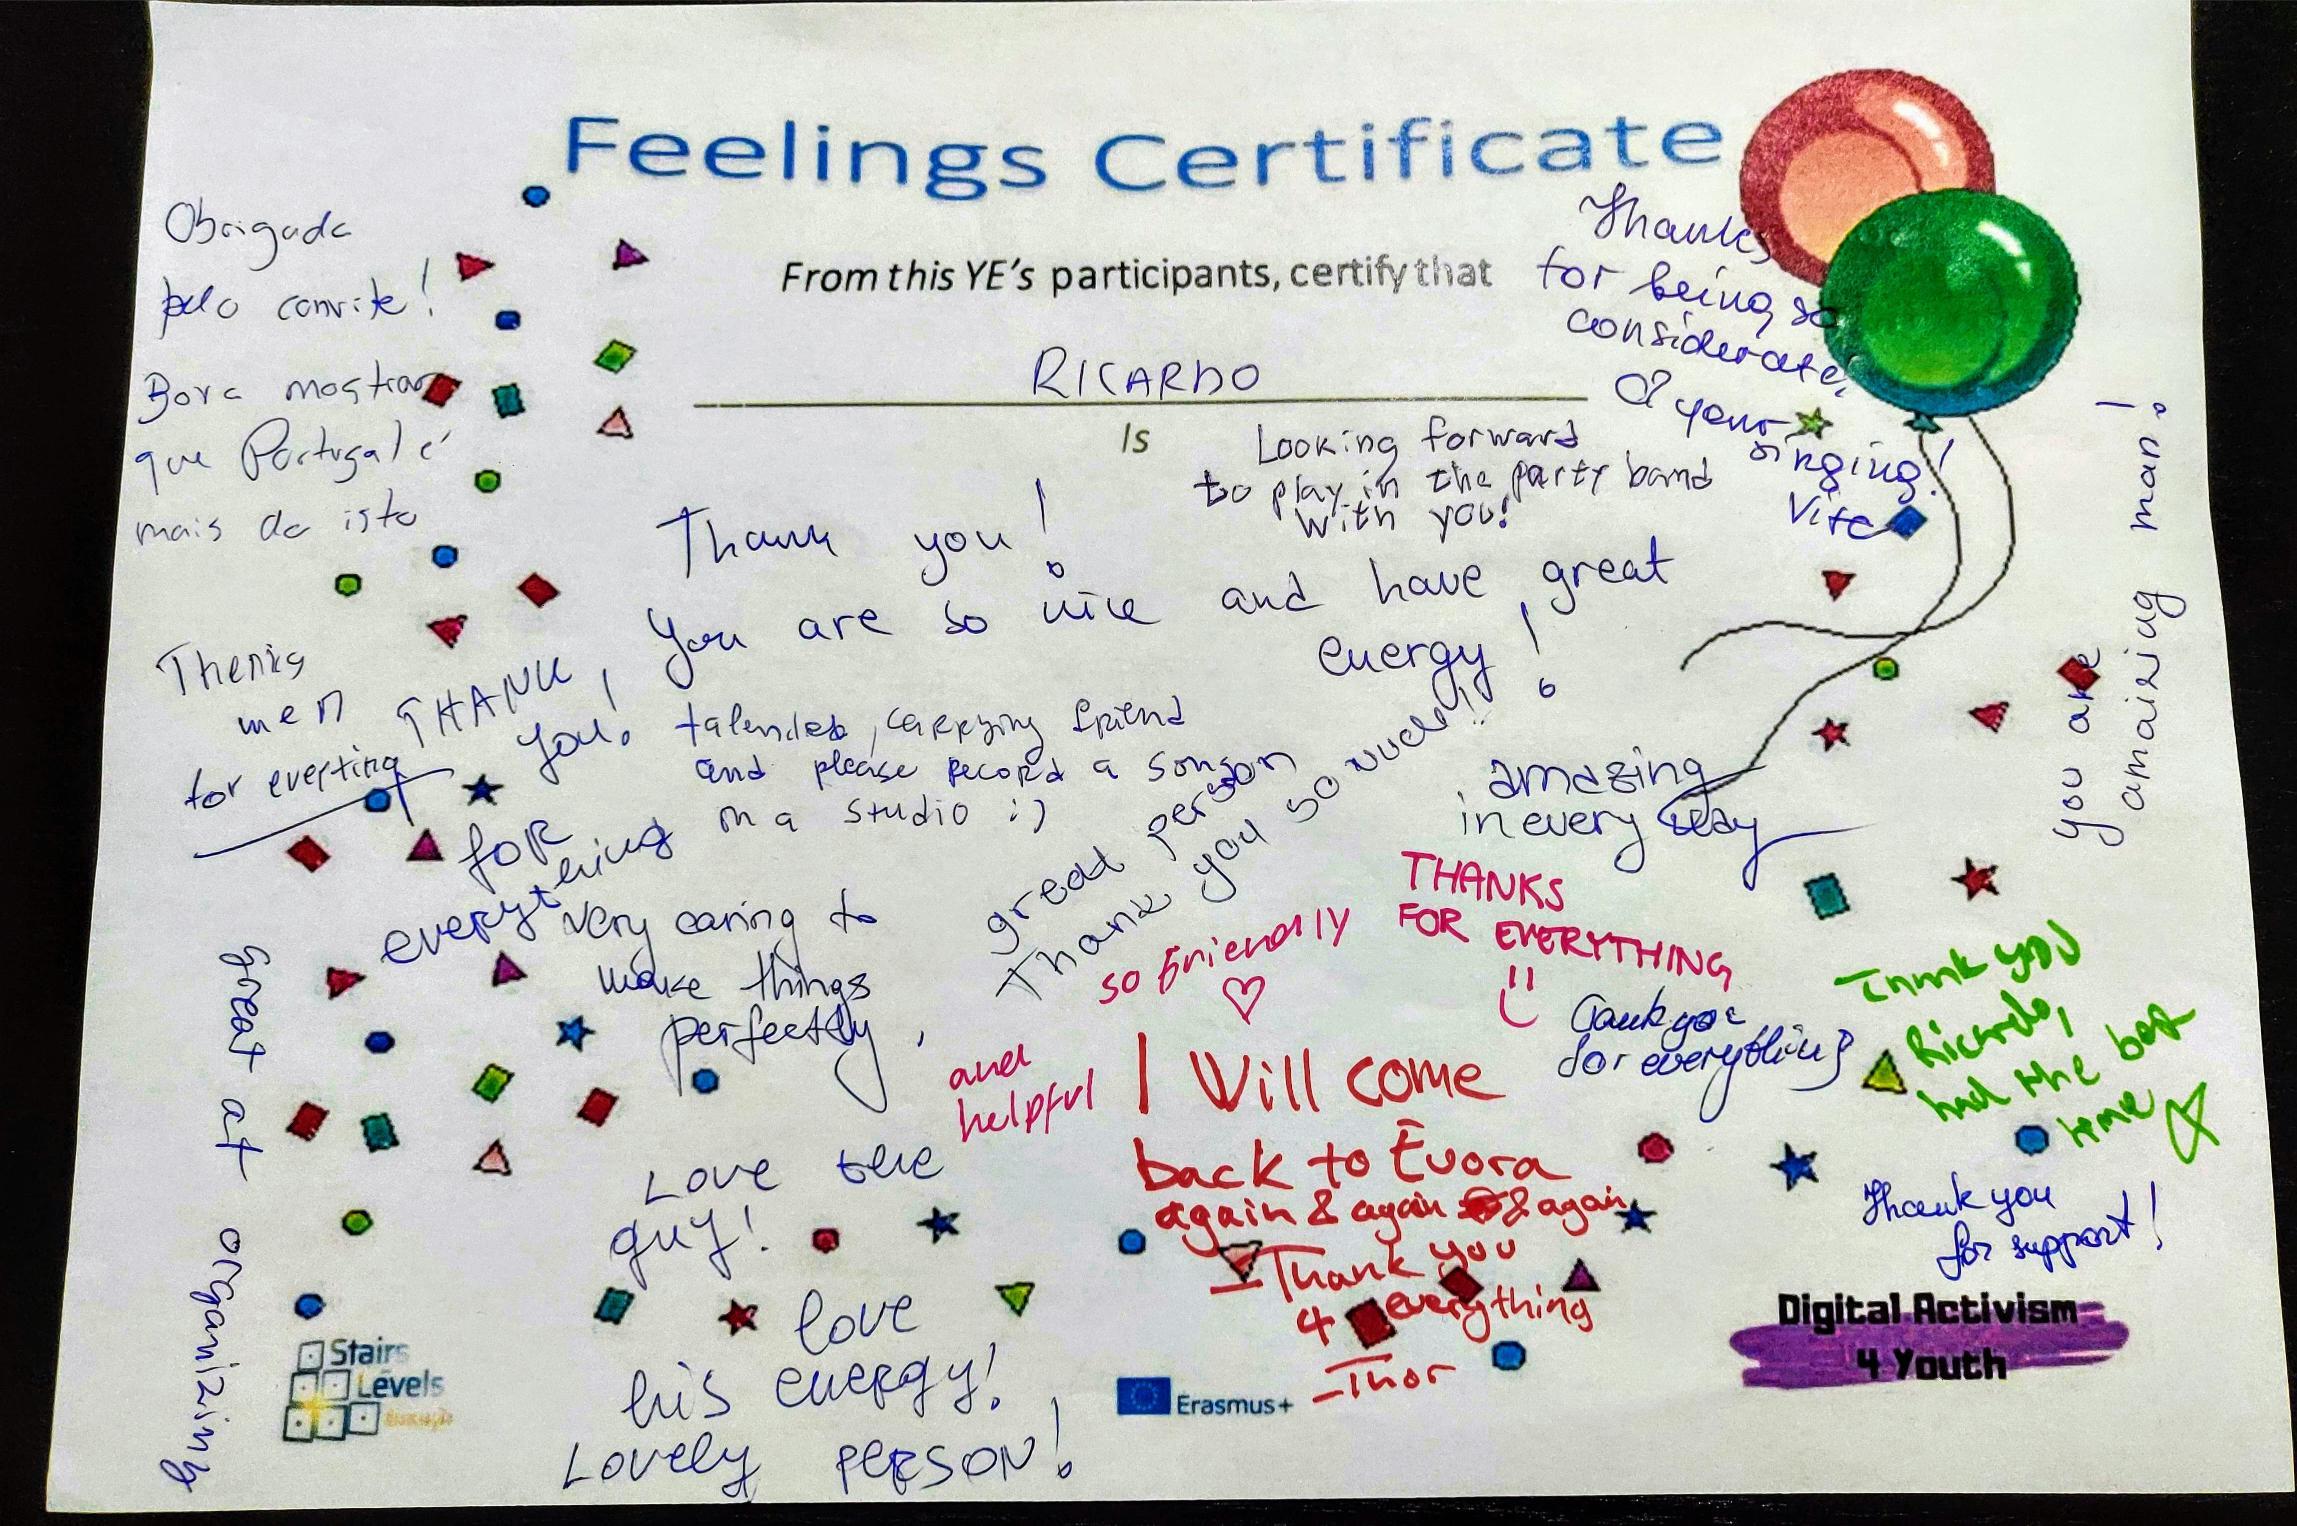 Feelings Certificate
From this YE's participants, certify that
RICARDO
Is
Obrigada
pelo convite!
Bora mostrar
que Portugal é
mais do isto
Thanks
for being so
considerate,
& your
singing!
Looking forward
to play in the party band
with you!
Thank you!
You are so nice and have great
energy!
you are
amaizing man!
Thenks
men
for everting
THANK
you!
for
everything
talended, carrying friend
and please record a song
on a studio :)
great person
Thank you so much!!
amazing
in every way
very caring to
make things
perfectly,
so friendly
♡
and
helpful
THANKS
FOR EVERYTHING
Thank you
for everything
Thank you
Ricardo,
had the best
time
great at organizing
I Will come
back to Évora
again & again & again
-Thank you
4 everything
-Thor
Love the
guy!
love
his energy!
Lovely person!
Thank you
for support!
Stairs
Levels
Erasmus+
Digital Activism
4 Youth